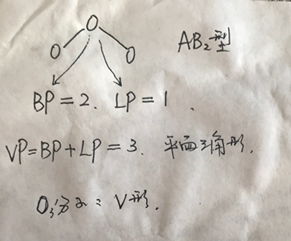 O
O O
AB₂型
BP=2. LP=1.
VP=BP+LP=3. 平面三角形.
O₃分子: V形.